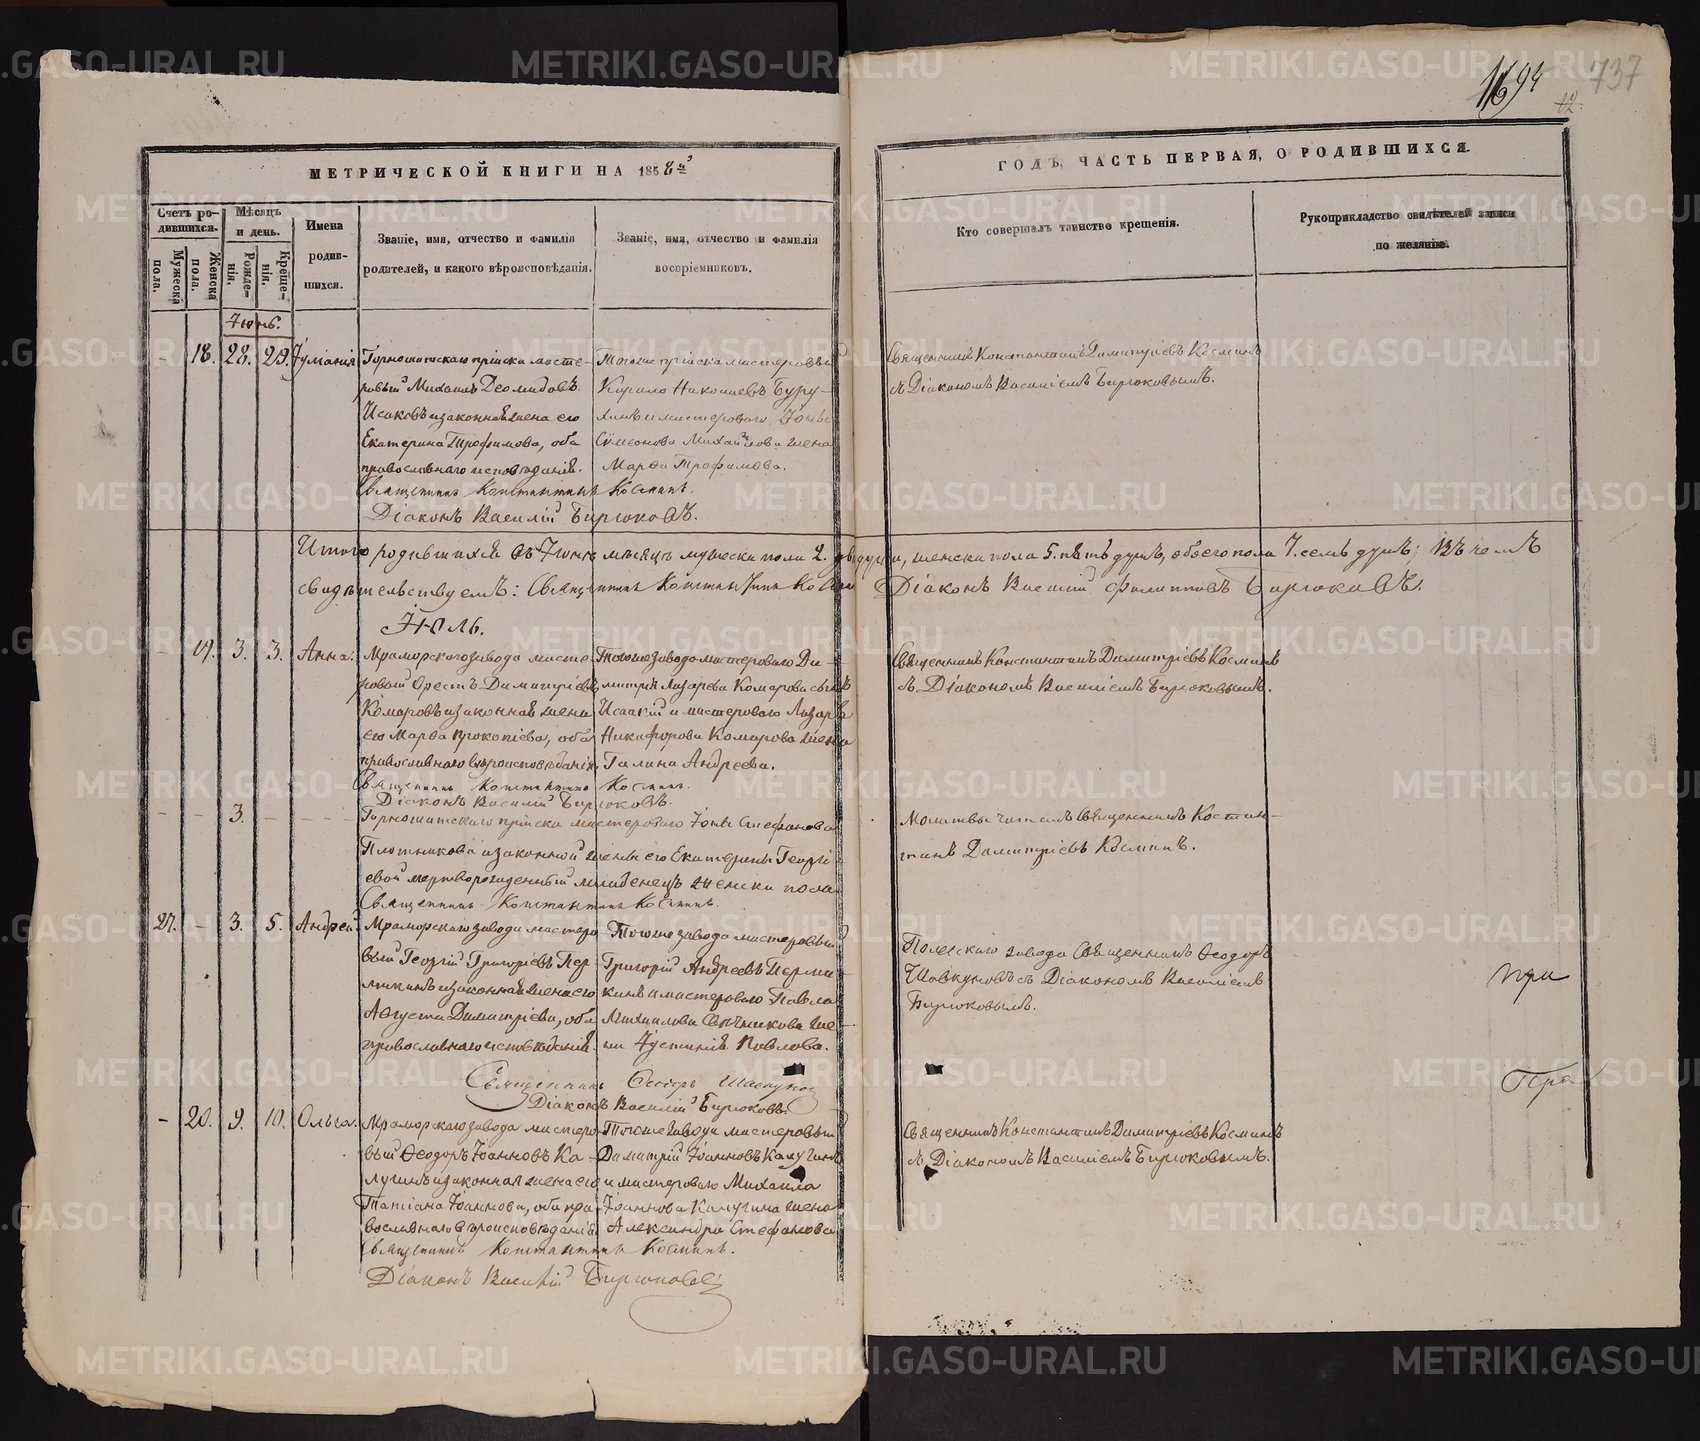 1694
737
12
МЕТРИЧЕСКОЙ КНИГИ НА 1858й
ГОДЪ, ЧАСТЬ ПЕРВАЯ, О РОДИВШИХСЯ.
Счетъ родившихся.
Мужеска пола.
Женска пола.
Мѣсяцъ и день.
Рожденія.
Крещенія.
Имена родившихся.
Званіе, имя, отчество и фамилія родителей, и какого вѣроисповѣданія.
Званіе, имя, отчество и фамилія воспріемниковъ.
Кто совершалъ таинство крещенія.
Рукоприкладство свидѣтелей записи по желанію.
Іюнь.
18. 28. 29. Іуліанія
Горнощитскаго пріиска масте-
ровый Михаилъ Деомидовъ
Исаковъ и законная жена его
Екатерина Трофимова, оба
православнаго исповѣданія.
Тогоже пріиска мастеровый
Кирило Николаевъ Буру-
хинъ и мастероваго Іоны
Симеонова Михайлова жена
Марѳа Трофимова.
Священникъ Константинъ Димитріевъ Косминъ
съ Діакономъ Василіемъ Бирюковымъ.
Священникъ Константинъ Косминъ.
Діаконъ Василій Бирюковъ.
Итого родившихся въ Іюнѣ мѣсяцѣ мужеска пола 2. двѣ души, женска пола 5. пять душъ, обоего пола 7. семь душъ; въ чемъ
свидѣтельствуемъ: Священникъ Константинъ Косминъ Діаконъ Василій Филипповъ Бирюковъ.
Іюль.
19. 3. 3. Анна.
Мраморскаго завода масте-
ровый Орестъ Димитріевъ
Комаровъ и законная жена
его Марѳа Прокопіева, оба
православнаго вѣроисповѣданія.
Тогоже завода мастероваго Ди-
митрія Лазарева Комарова сынъ
Исаакій и мастероваго Лазаря
Никифорова Комарова жена
Галина Андреева.
Священникъ Константинъ Димитріевъ Косминъ
съ Діакономъ Василіемъ Бирюковымъ.
Священникъ Константинъ Косминъ.
Діаконъ Василій Бирюковъ.
3.
Горнощитскаго пріиска мастероваго Іоны Стефанова
Плотникова и законной жены его Екатерины Георгі-
евой мертворожденный младенецъ женска пола
Молитвы читалъ Священникъ Констан-
тинъ Димитріевъ Косминъ.
Священникъ Константинъ Косминъ.
27. - 3. 5. Андрей
Мраморскаго завода мастеро-
вый Георгій Григорьевъ Пер-
микинъ и законная жена его
Августа Димитріева, оба
православнаго исповѣданія.
Тогоже завода мастеровый
Григорій Андреевъ Перми-
кинъ и мастероваго Павла
Михаилова жe-
на Іустинія Павлова.
Полевскаго завода Священникъ Ѳеодоръ
съ Діакономъ Василіемъ
Бирюковымъ.
при
Священникъ Ѳеодоръ
Діаконъ Василій Бирюковъ.
Пра
- 20. 9. 10. Ольга.
Мраморскаго завода мастеро-
вый Ѳеодоръ Іоанновъ Ка-
лугинъ и законная жена его
Татіана Іоаннова, оба пра-
вославнаго вѣроисповѣданія.
Тогоже завода мастеровый
Димитрій Іоанновъ Калугинъ
и мастероваго Михаила
Іоаннова Калугина жена
Александра Стефанова
Священникъ Константинъ Димитріевъ Косминъ
съ Діакономъ Василіемъ Бирюковымъ.
Священникъ Константинъ Косминъ.
Діаконъ Василій Бирюковъ
METRIKI.GASO-URAL.RU